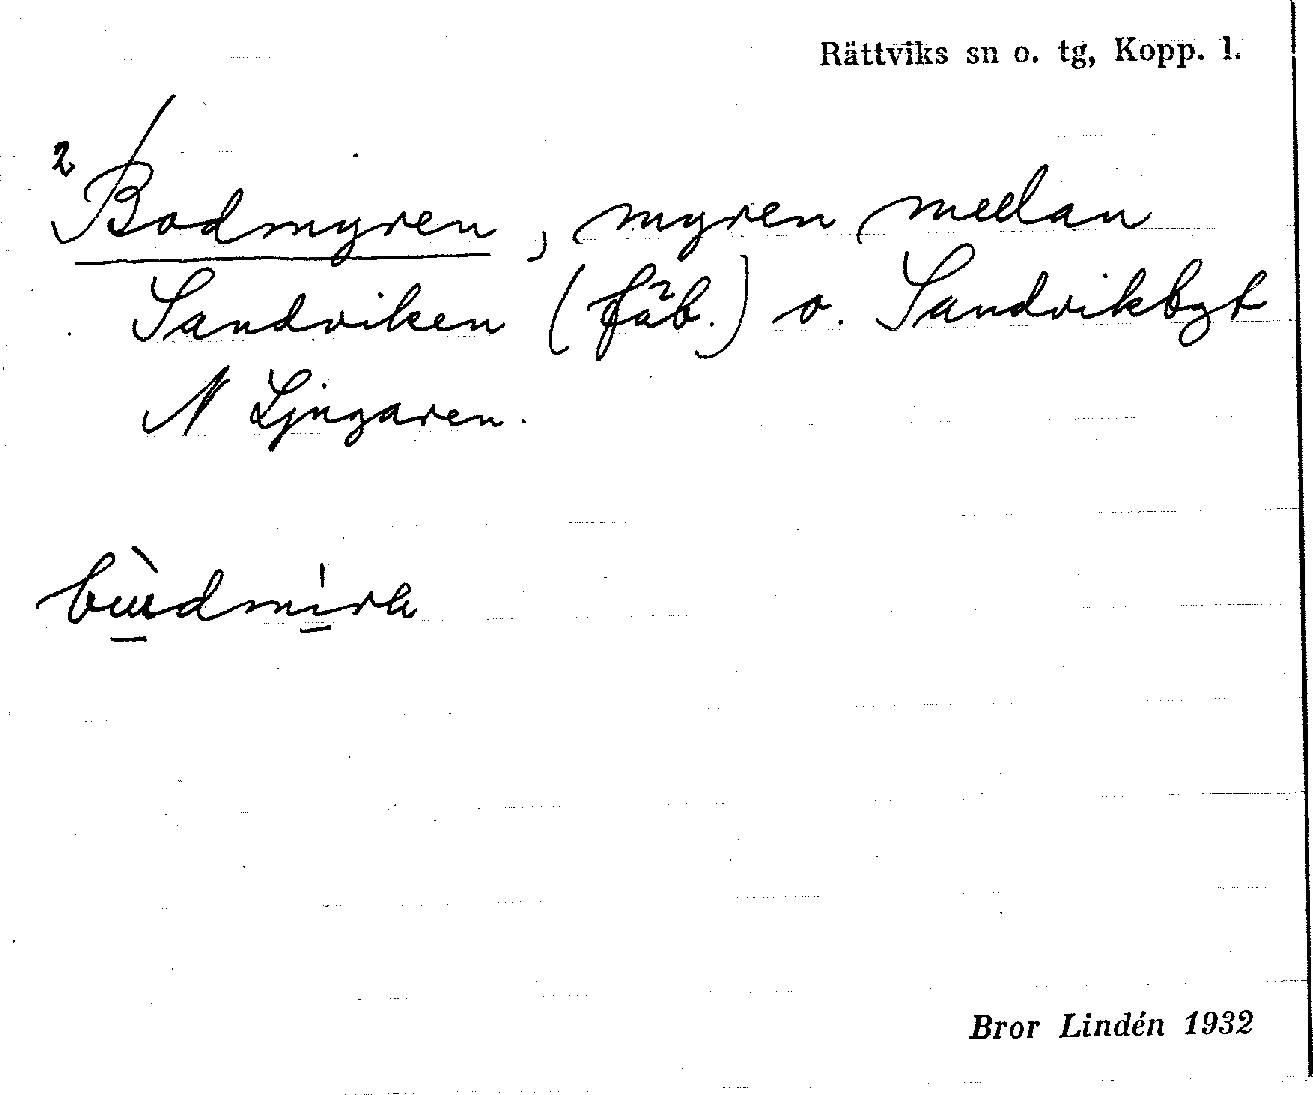 Rättviks sn o. tg, Kopp. l.
2 Bodmyren, myren mellan
Sandviken (fäb.) o. Sandvikbyt
N Ljugaren.
Bror Lindén 1932